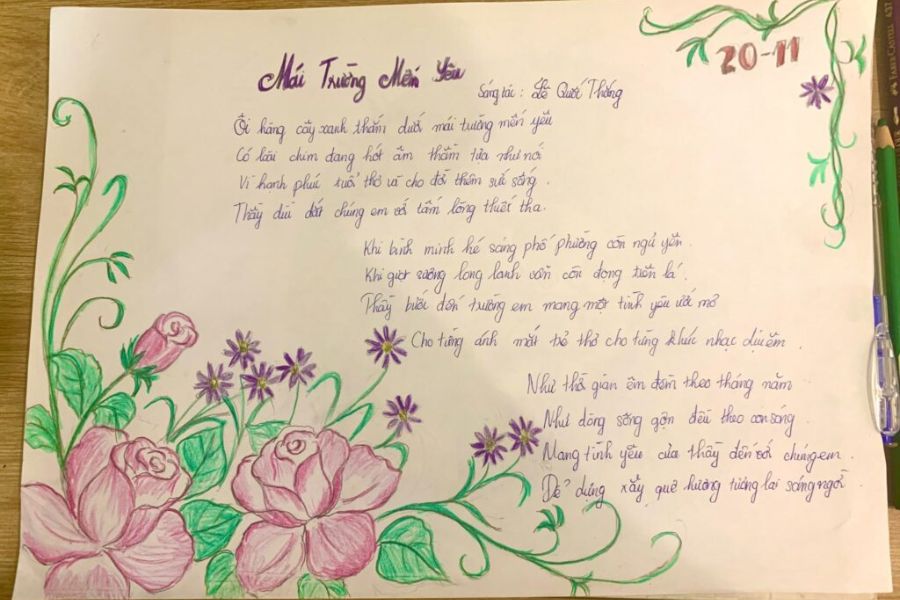 20-11
Mái Trường Mến Yêu
Sáng tác : Lê Quốc Thắng
Ôi hàng cây xanh thắm dưới mái trường mến yêu
Có loài chim đang hót âm thầm tựa như nói
Vì hạnh phúc tuổi thơ và cho đời thêm sức sống .
Thầy dìu dắt chúng em với tấm lòng thiết tha.
Khi bình minh hé sáng phố phường còn ngủ yên .
Khi giọt sương long lanh vẫn còn đọng trên lá .
Thầy bước đến trường em mang một tình yêu ước mơ
Cho từng ánh mắt trẻ thơ cho từng khúc nhạc dịu êm .
Như thời gian êm đềm theo tháng năm
Như dòng sông gợn đều theo cơn sóng .
Mang tình yêu của thầy đến với chúng em .
Để dựng xây quê hương tương lai sáng ngời .
FABER-CASTELL